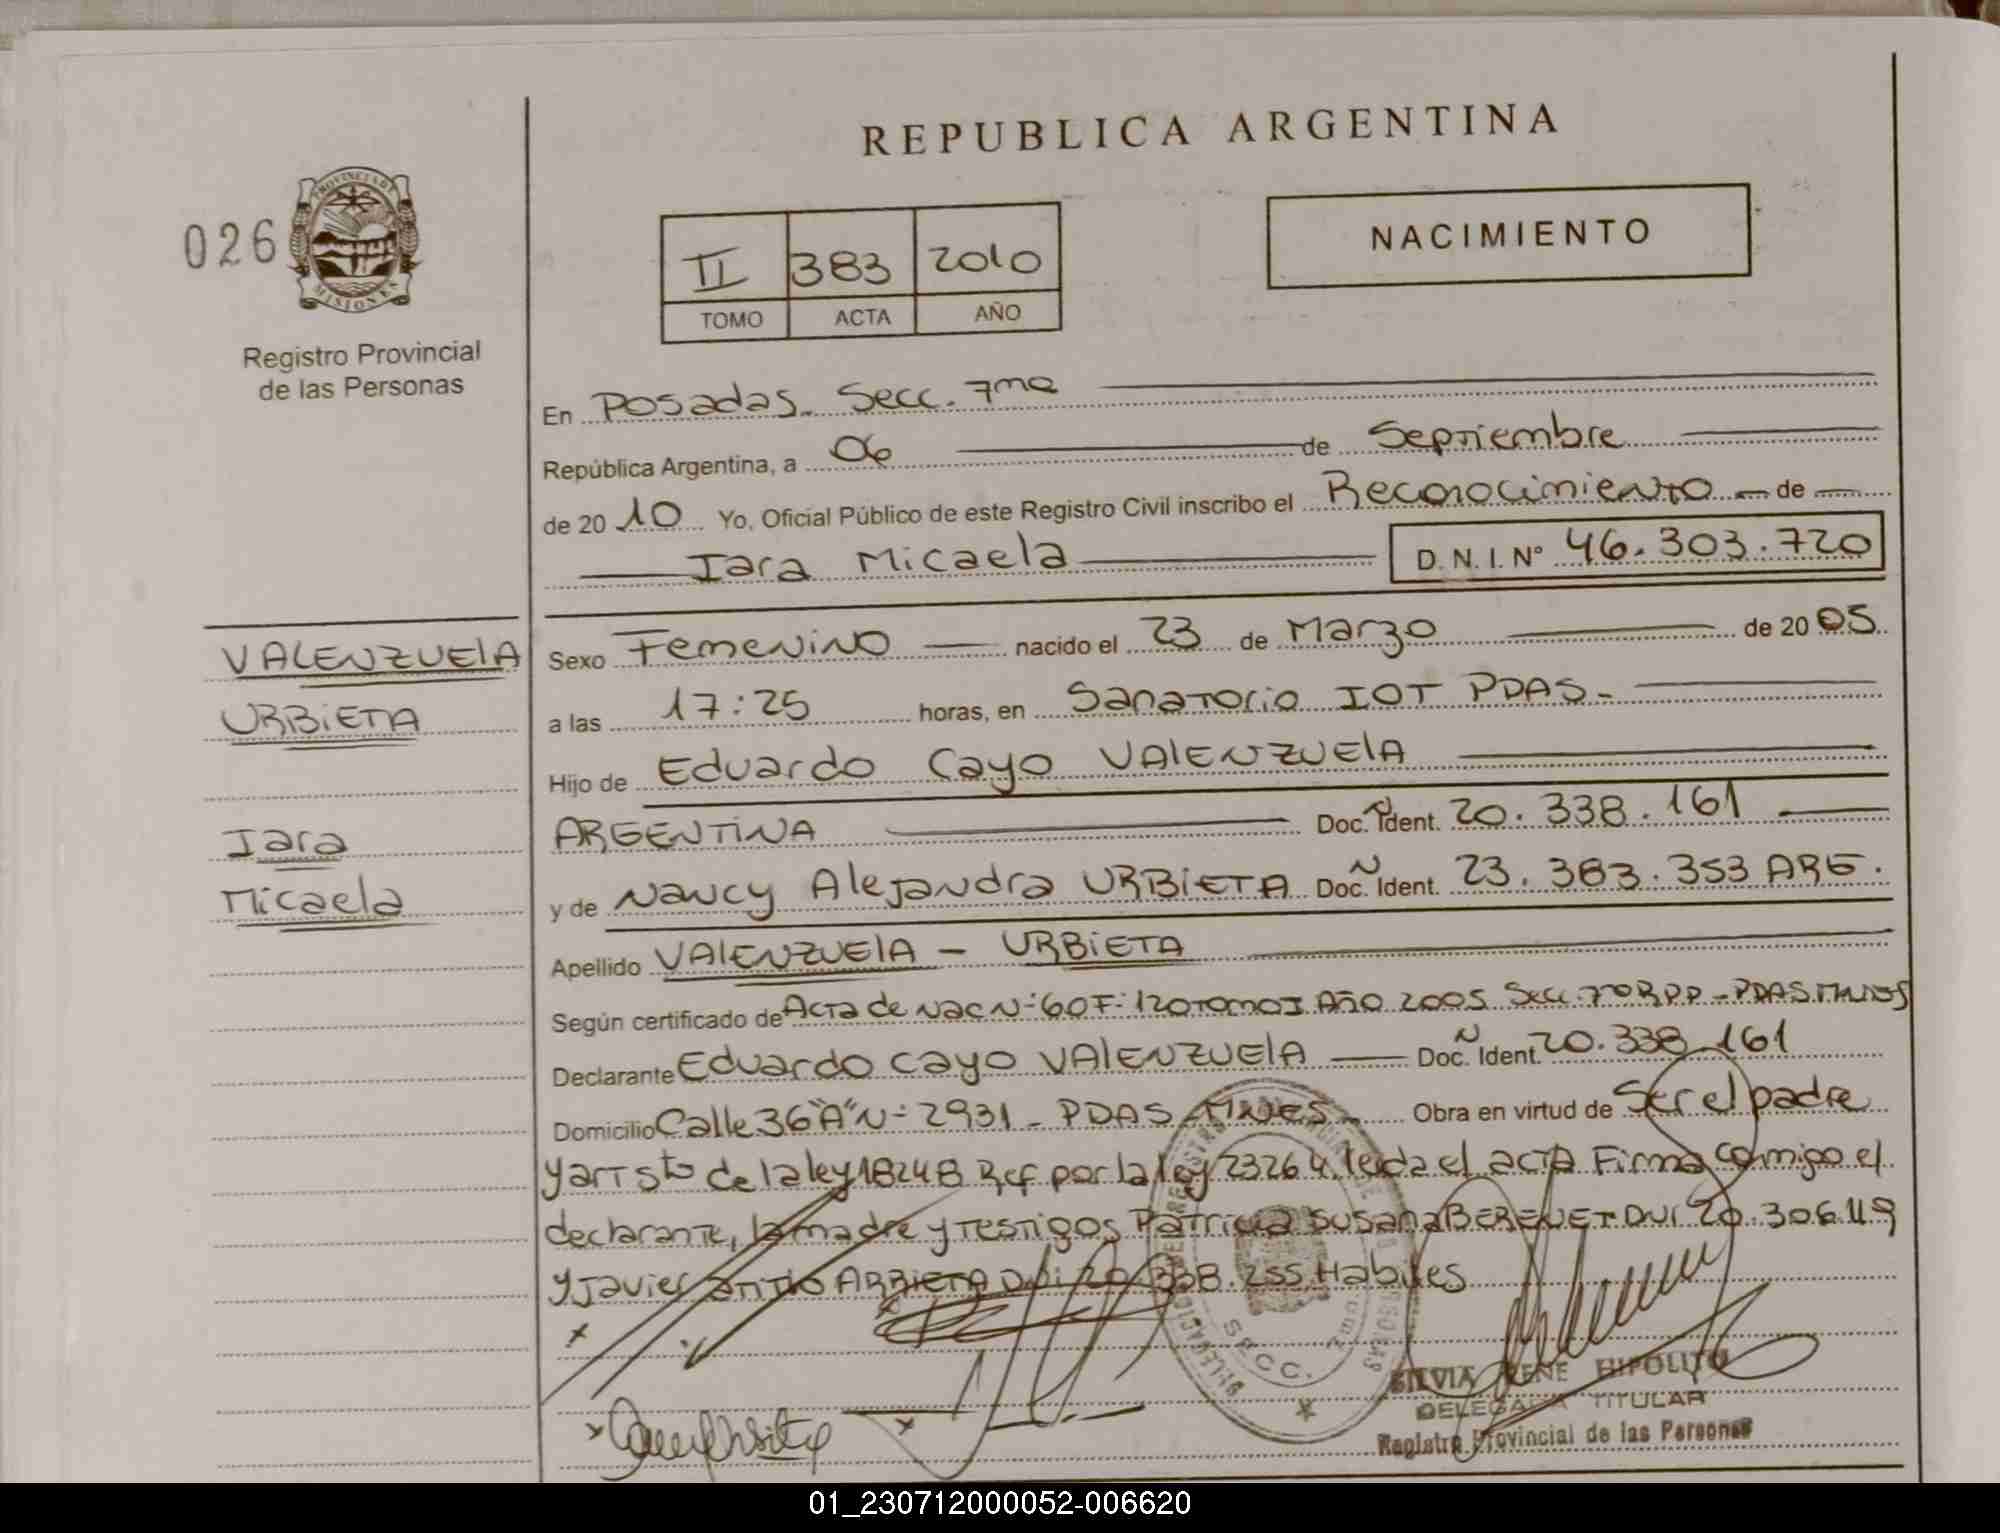 REPUBLICA ARGENTINA
026
PROVINCIA DE
MISIONES
Registro Provincial
de las Personas
II 383 2010
TOMO ACTA AÑO
NACIMIENTO
En Posadas. Secc. 7ma
República Argentina, a 06 de Septiembre
de 2010 Yo, Oficial Público de este Registro Civil inscribo el Reconocimiento de
Iara Micaela D. N. I. Nº 46.303.720
VALENZUElA
URBiETA
Iara
Micaela
Sexo Femenino nacido el 23 de Marzo de 2005
a las 17:25 horas, en Sanatorio IOT PDAS-
Hijo de Eduardo Cayo VAlENZUElA
ARGENTINA Doc. Ident. 20.338.161
y de Nancy Alejandra URBiETA Doc. Ident. 23.383.353 ARG.
Apellido VAlENZUElA - URBiETA
Según certificado de Acta de Nac Nº 60 Fº 120 Tomo I Año 2005 Secc. 7º RPP - PDAS.
Declarante Eduardo Cayo VAlENZUElA Doc. Ident. 20.338.161
Domicilio Calle 36 "A" Nº 2931 - PDAS Obra en virtud de Ser el padre
y art 5to de la ley 18248 Ref por la ley 23264. leida el acta Firma comigo el
declarante, la madre y testigos Patricia Susana DNI 20.306.119
y Javier DNi 20.338.255. Habiles
SECC. 7ma
SILVIA IRENE HIPOLITO
DELEGADA TITULAR
Registro Provincial de las Personas
01_230712000052-006620